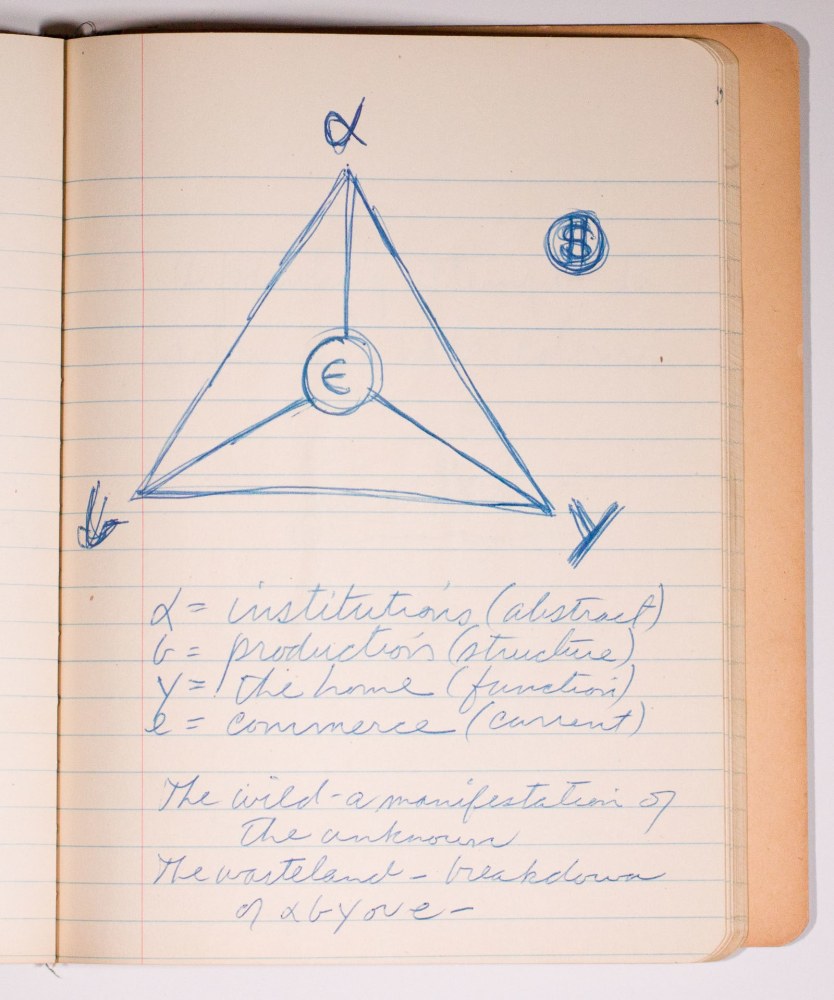 α
$
ϵ
b
y
α = institutions (abstract)
b = production (structure)
y = the home (function)
e = commerce (current)
The wild - a manifestation of
the unknown
The wasteland - breakdown
of α b y or e -